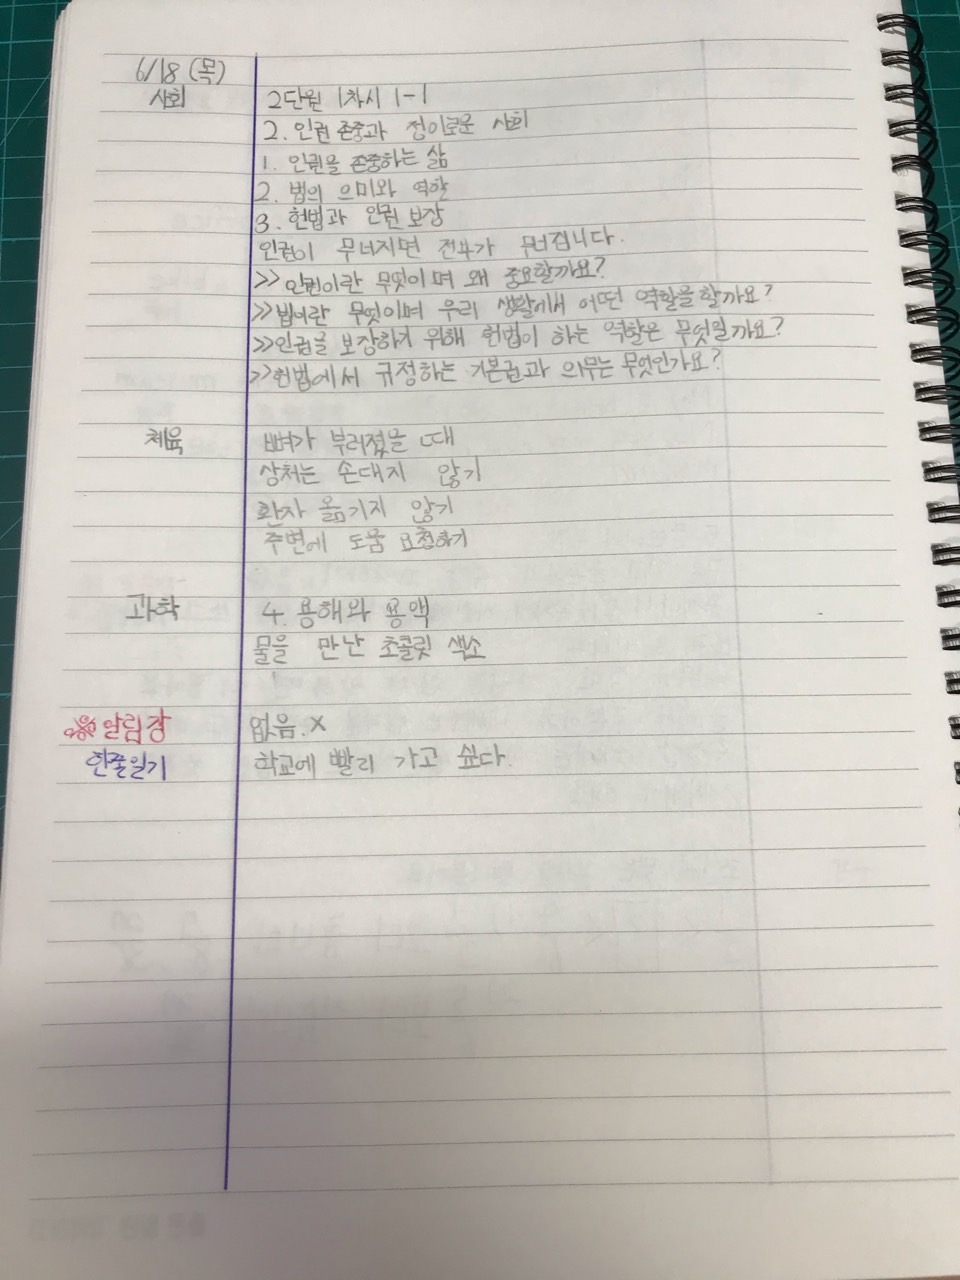 6/18 (목)
사회 2단원 1차시 1-1
2. 인권 존중과 정의로운 사회
1. 인권을 존중하는 삶
2. 법의 의미와 역할
3. 헌법과 인권 보장
인권이 무너지면 전부가 무너집니다.
>> 인권이란 무엇이며 왜 중요할까요?
>> 법이란 무엇이며 우리 생활에서 어떤 역할을 할까요?
>> 인권을 보장하기 위해 헌법이 하는 역할은 무엇일까요?
>> 헌법에서 규정하는 기본권과 의무는 무엇인가요?
체육 뼈가 부러졌을 때
상처는 손대지 않기
환자 옮기지 않기
주변에 도움 요청하기
과학 4. 용해와 용액
물을 만난 초콜릿 색소
※알림장 없음. X
한줄일기 학교에 빨리 가고 싶다.